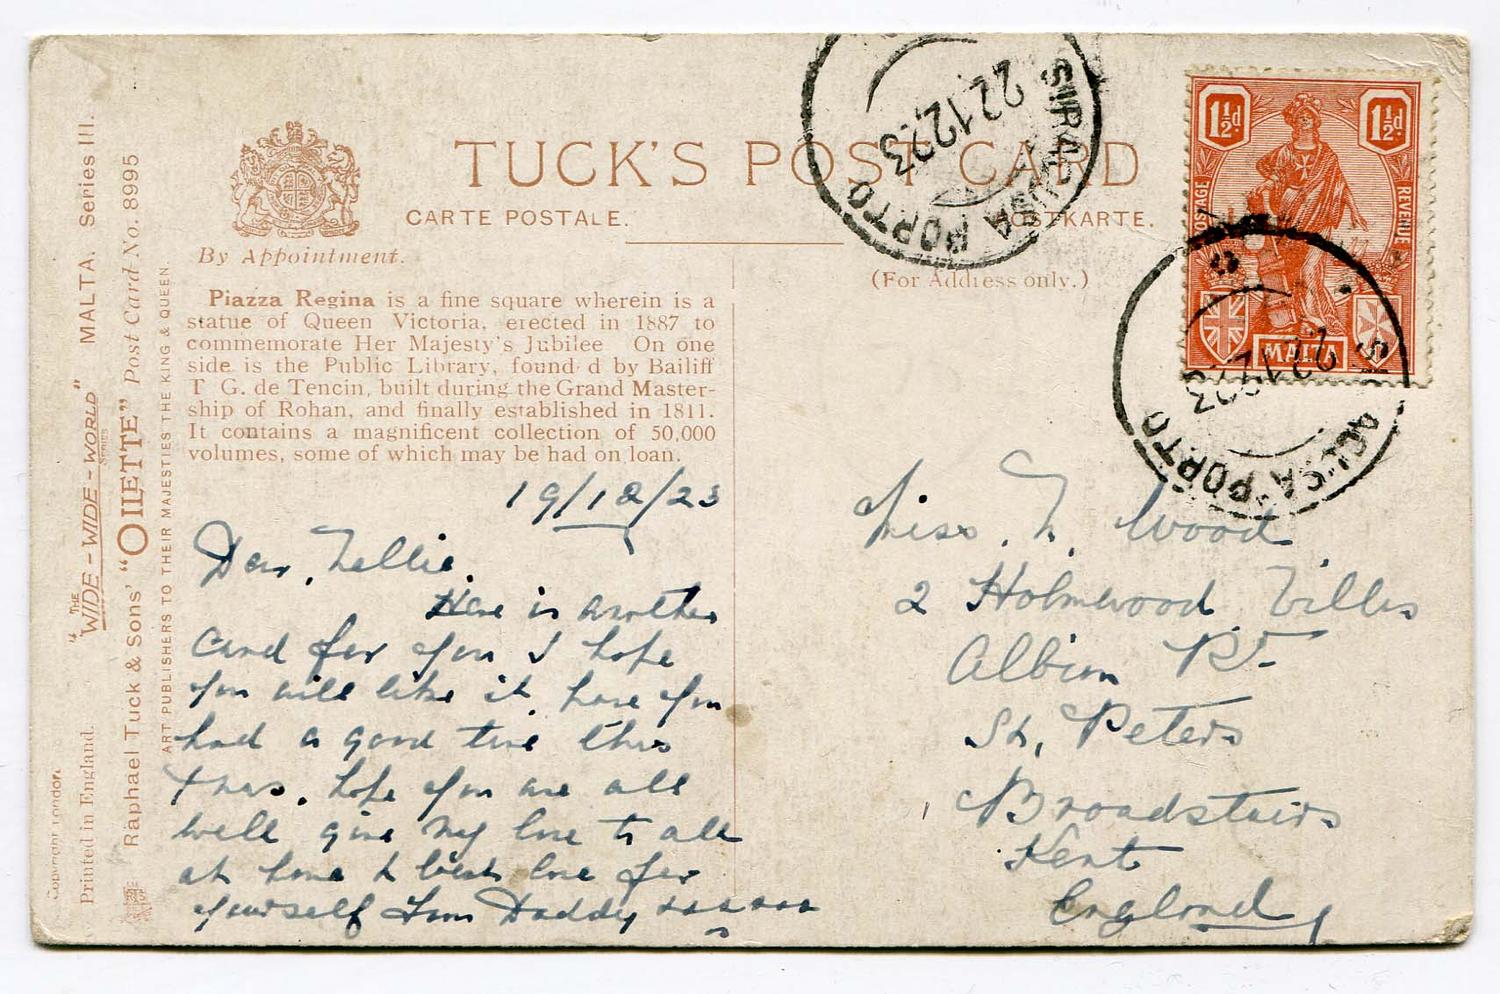 TUCK'S POST CARD
CARTE POSTALE.
POSTKARTE.
By Appointment.
(For Address only.)
Piazza Regina is a fine square wherein is a
statue of Queen Victoria, erected in 1887 to
commemorate Her Majesty's Jubilee On one
side is the Public Library, found d by Bailiff
T G. de Tencin, built during the Grand Master-
ship of Rohan, and finally established in 1811.
It contains a magnificent collection of 50,000
volumes, some of which may be had on loan.
19/12/23
Dear, Nellie.
Here is another
Card for you I hope
you will like it, have you
had a good time this
Xmas. hope you are all
well give my love to all
at home & best love for
yourself from Daddy xxxxxx
Miss. N. Wood
2 Holmwood Villas
Albion Rd
St, Peters
Broadstairs
Kent
England
1½d
1½d
POSTAGE
REVENUE
MALTA
SIRACUSA PORTO
22.12.23
SIRACUSA PORTO
22.12.23
"THE
WIDE-WIDE-WORLD"
SERIES
MALTA. Series III.
Raphael Tuck & Sons' "OILETTE" Post Card No. 8995
ART PUBLISHERS TO THEIR MAJESTIES THE KING & QUEEN.
Copyright London
Printed in England.